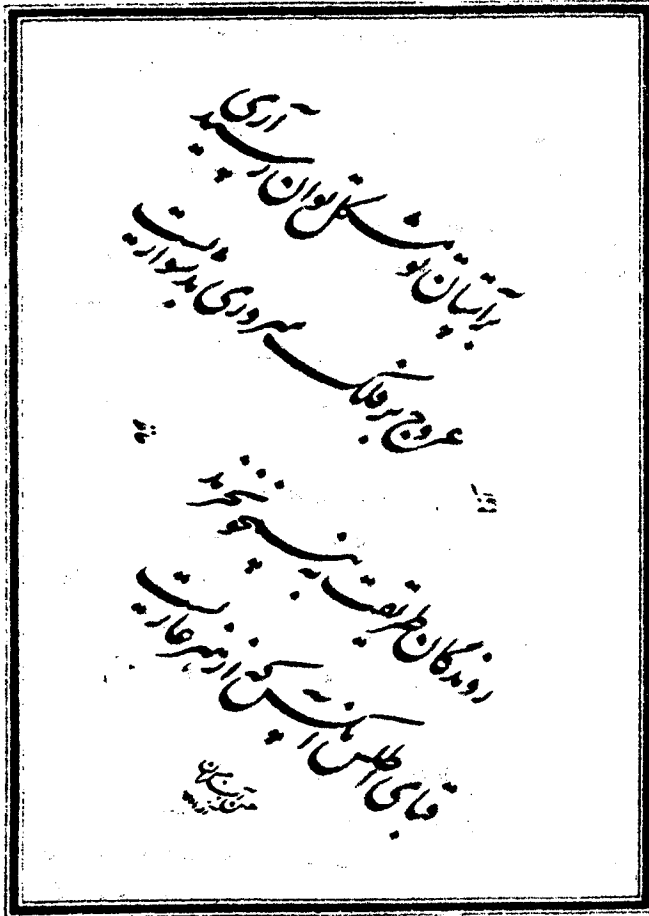 بر آستان تو مشکل توان رسید آری
عروج بر فلک سروری بدشواریست
روندگان طریقت به نیم جو نخرند
قبای اطلس آنکس که از هنر عاریست